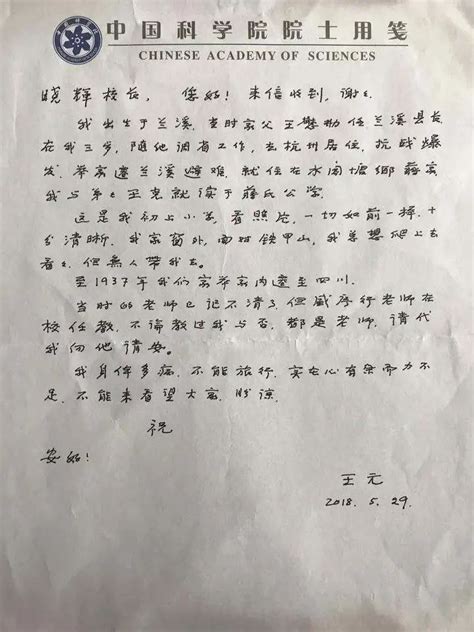 中国科学院院士用笺
CHINESE ACADEMY OF SCIENCES
晓辉校长，您好！来信收到，谢谢。
我出生于兰溪，当时家父王懋勤任兰溪县长
在我三岁，随他调省工作，去杭州居住，抗战爆
发，举家迁兰溪避难，就住在水阁塘乡蒋家
我与弟弟王克就读于蒋氏公学
这是我初上小学，看照片，一切如前一样，十
分清晰，我家窗外，面对铁甲山，我总想爬上去
看看，但無人带我去。
至1937年我们离举家内遷至四川。
当时的老师已记不清了，但戚序行老师在
校任教，不论教过我与否，都是老师，请代
我向他请安。
我身体多病，不能旅行，实在心有余而力不
足，不能来看望大家，盼谅。
祝
安好！
王元
2018. 5. 29.